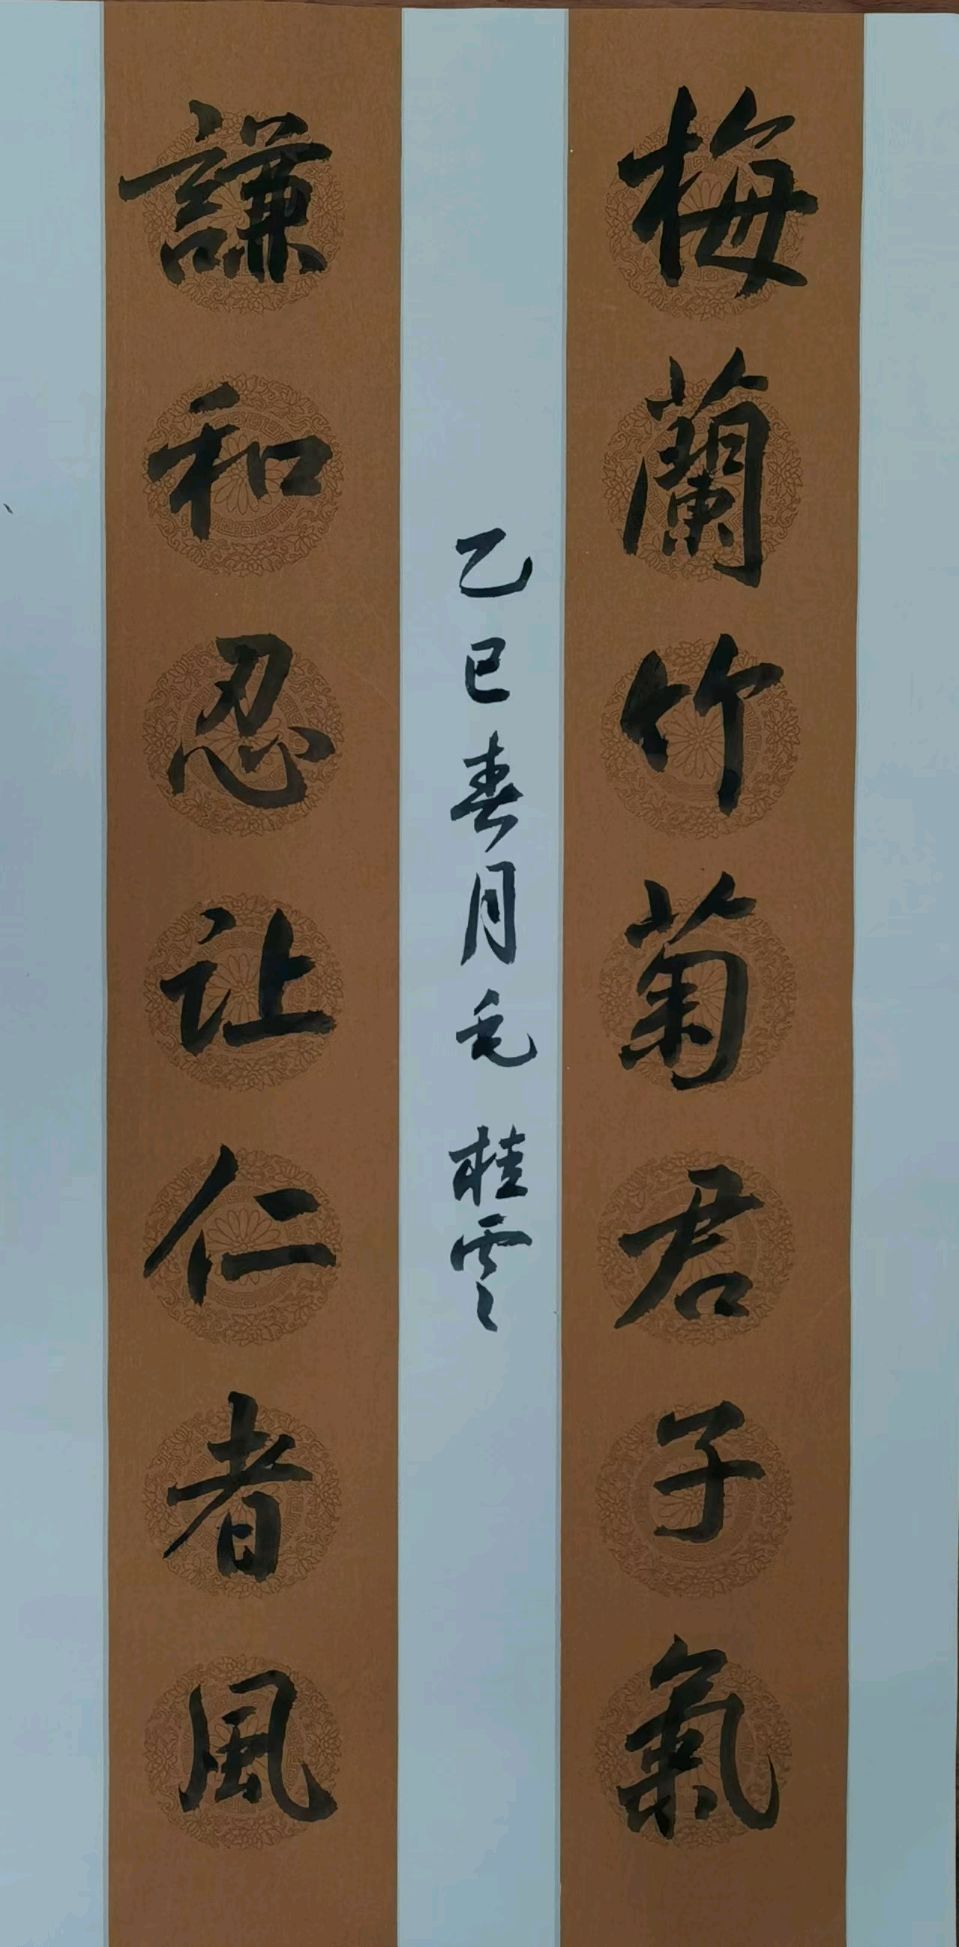 梅蘭竹菊君子氣
謙和忍让仁者風
乙巳春月毛桂雲